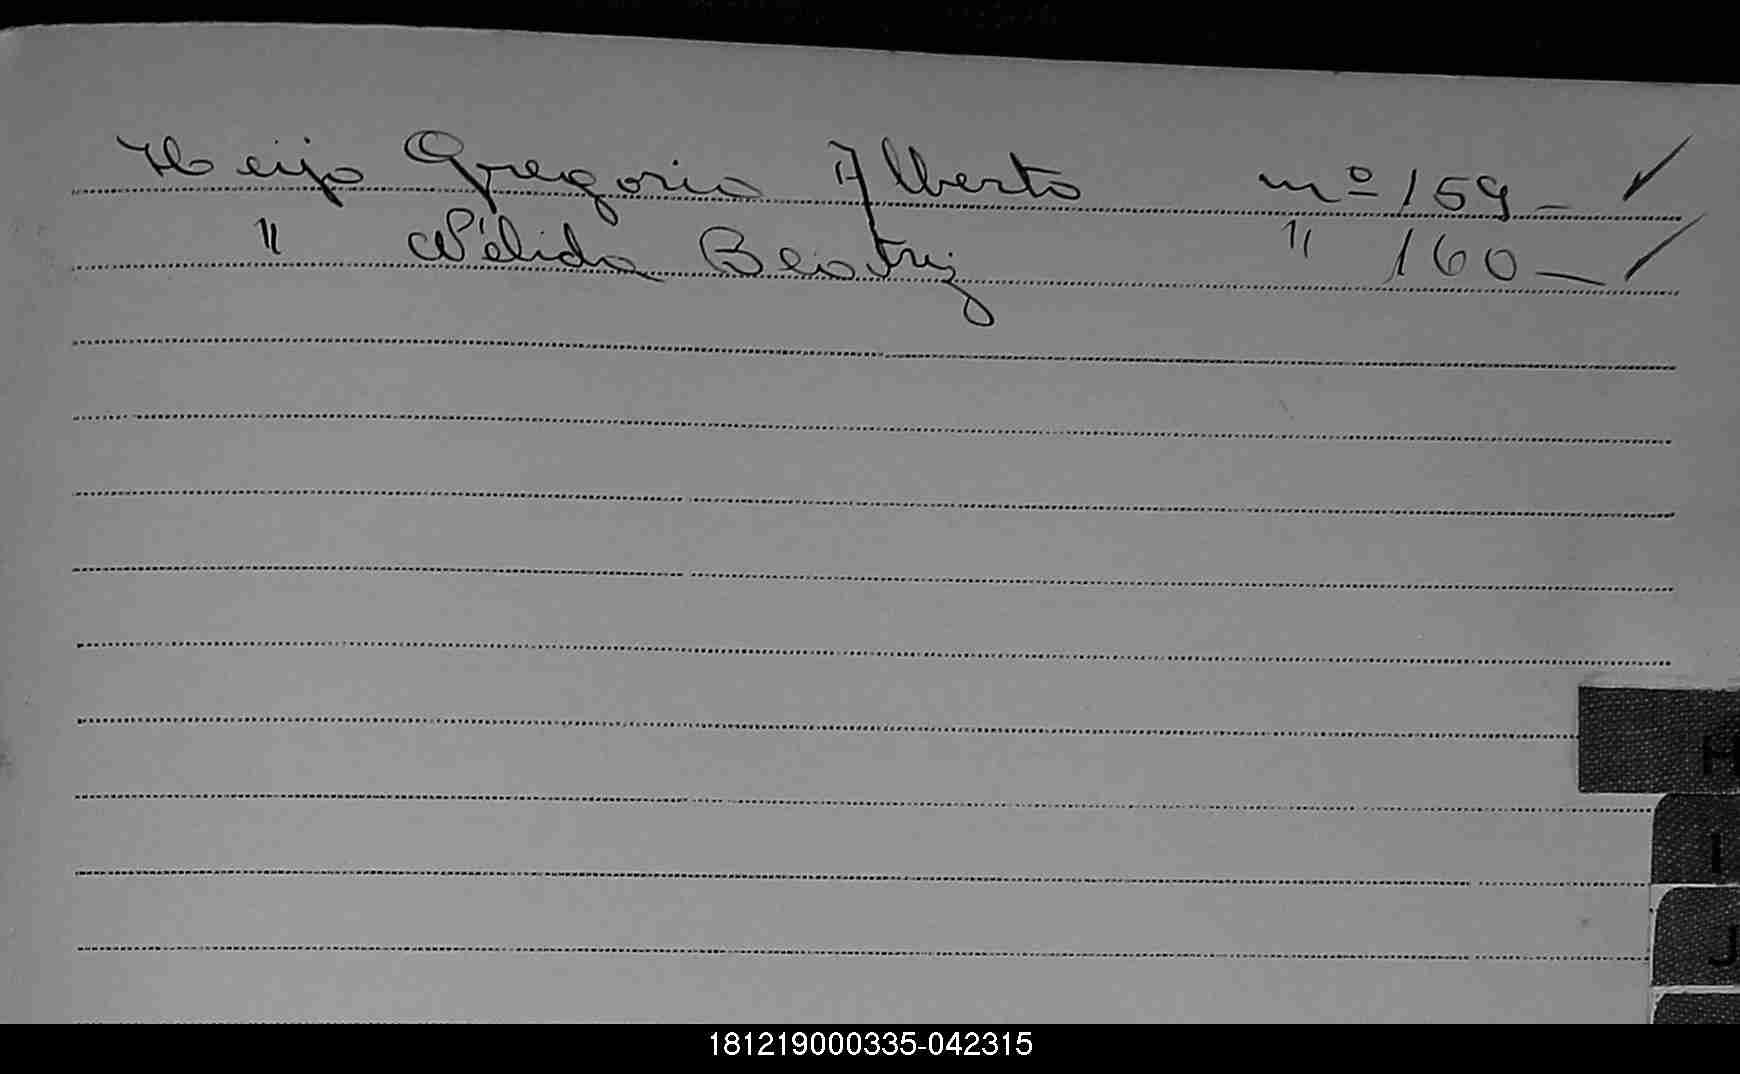 Heijo Gregorio Alberto nº 159 –
" Nélida Beatriz " 160 –
H
I
J
181219000335-042315